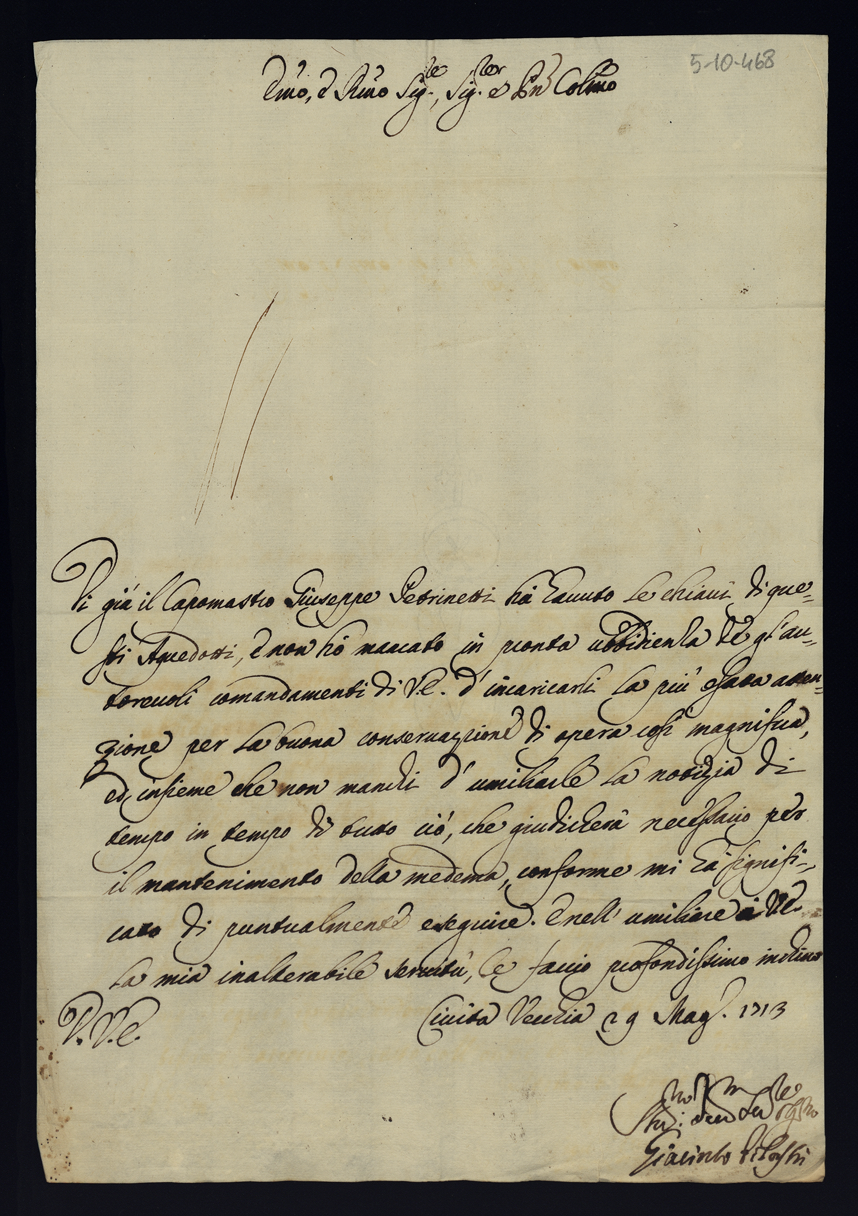 5-10-468
Emo, e Rmo Sig.re, Sig.re e Pne Colmo
Di già il Capomastro Giuseppe Petrinetti hà hauuto le chiaui di que-
sti Aquedotti, e non hò mancato in pronta ubbidienza de gl'au-
toreuoli comandamenti di V.E. d'incaricarli la più esatta atten-
zione per la buona conseruazione di opera così magnifica,
ed insieme che non manchi d'umiliarle la notizia di
tempo in tempo di tutto ciò, che giudicherà necessario per
il mantenimento della medema, conforme mi hà signifi-
cato di puntualmente eseguire. E nell'umiliare à V.E.
la mia inalterabile seruitù, le faccio profondissimo inchino
D. V. E. Ciuita Vecchia 29 Mag.o 1713
Giacinto